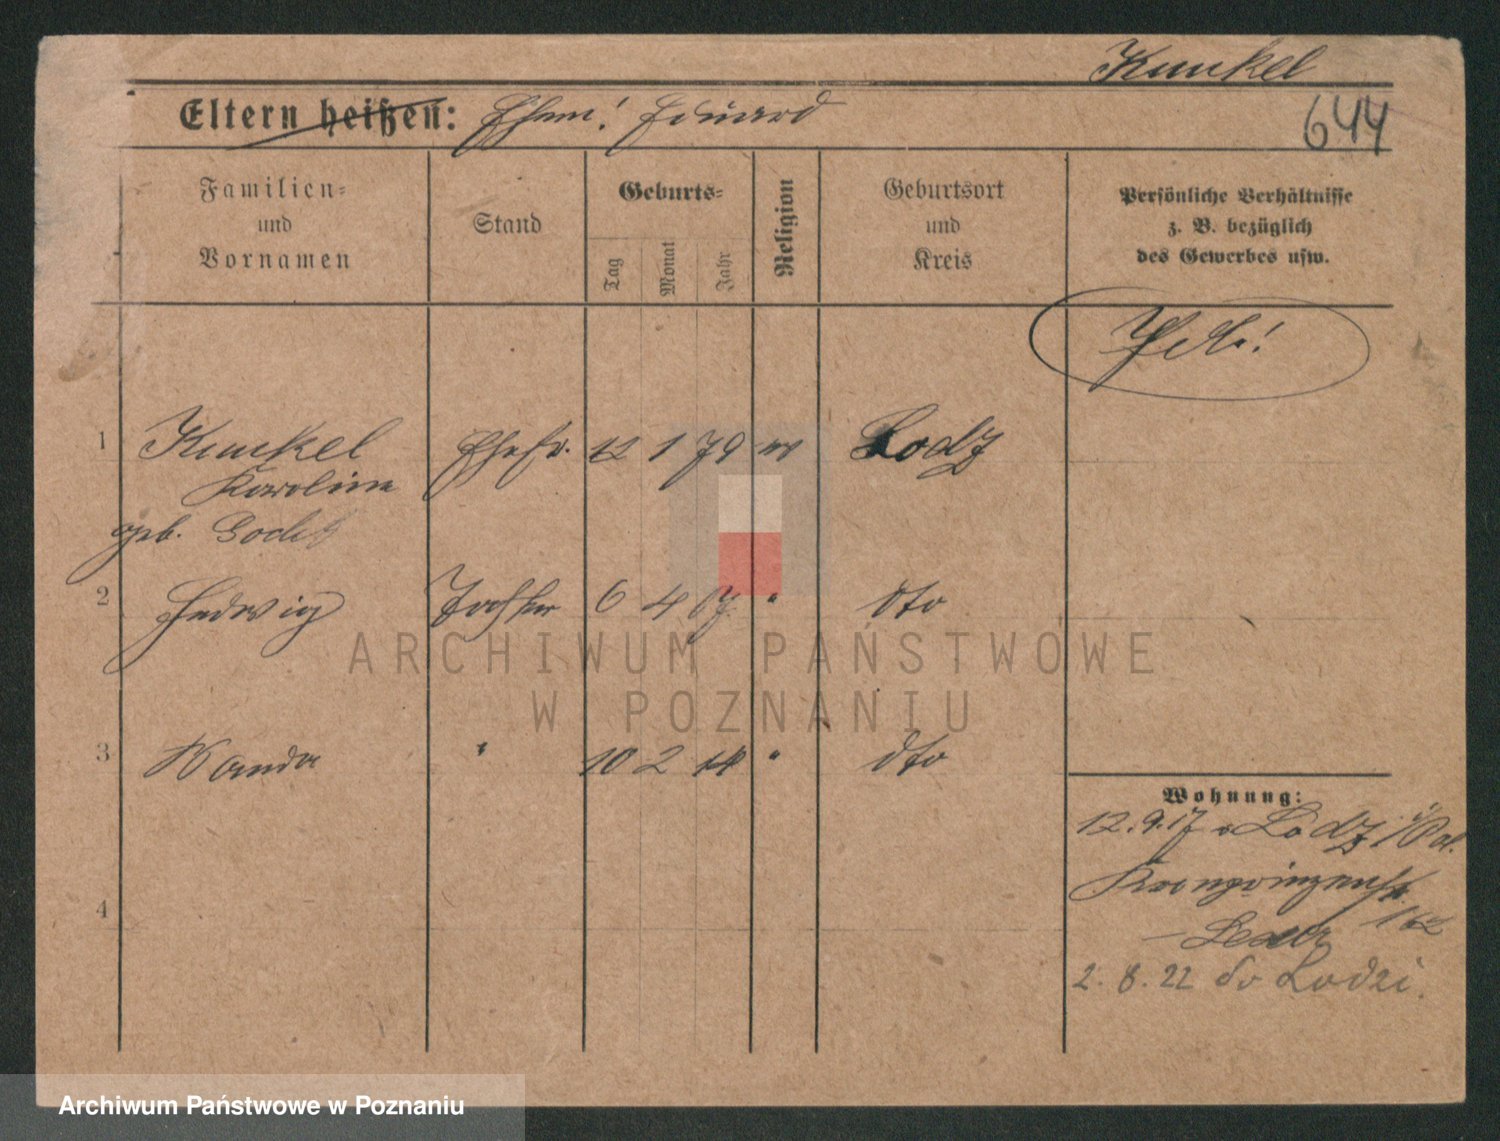 Kunkel
Eltern heißen: Ehem! Eduard
644
Familien-
und
Vornamen
Stand
Geburts-
Tag
Monat
Jahr
Religion
Geburtsort
und
Kreis
Persönliche Verhältnisse
z. B. bezüglich
des Gewerbes usw.
1 Kunkel Ehefr. 12 1 79 Lodz
Karoline
geb.
2 Hedwig Tochter 6 4 07 " dto
3 Wanda " 10 2 " dto
4
Wohnung:
12.9.17 v Lodz
Kronprinzenstr.
162
2.8.22 do Lodzi.
ARCHIWUM PAŃSTWOWE
W POZNANIU
Archiwum Państwowe w Poznaniu